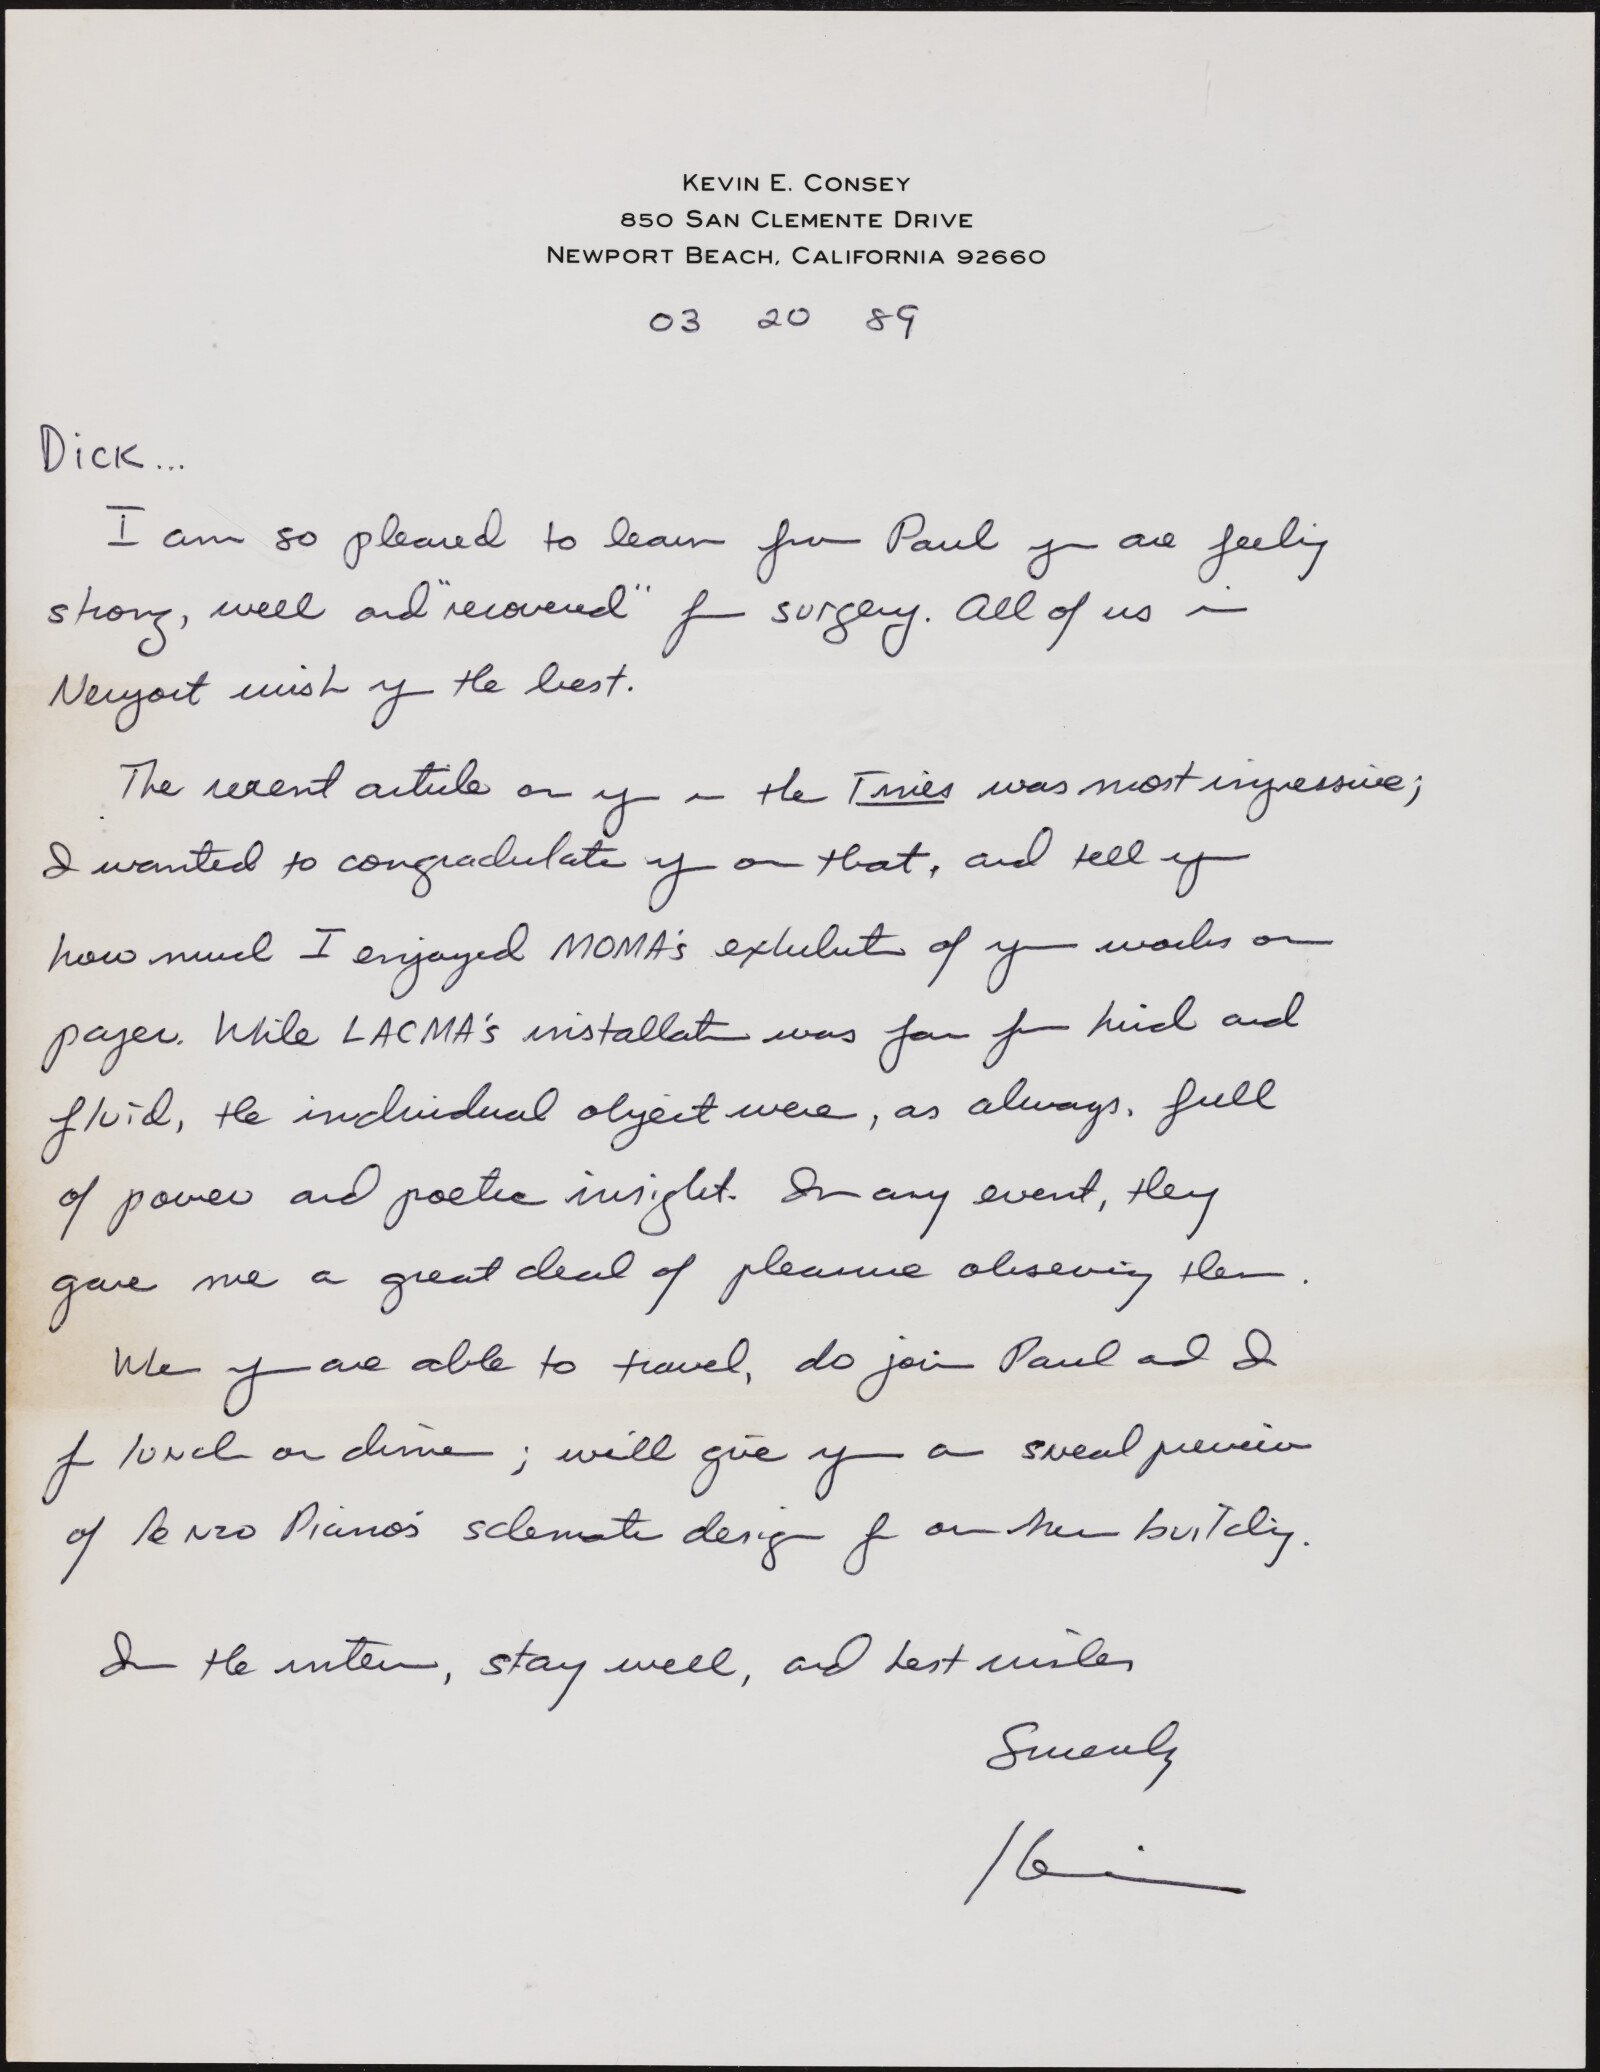 KEVIN E. CONSEY
850 SAN CLEMENTE DRIVE
NEWPORT BEACH, CALIFORNIA 92660
03 20 89
Dick...
I am so pleased to learn from Paul you are feeling
strong, well and "recovered" from surgery. All of us in
Newport wish you the best.
The recent article on you in the Times was most impressive;
I wanted to congradulate you on that, and tell you
how much I enjoyed MOMA's exhibition of your works on
paper. While LACMA's installation was far from lucid and
fluid, the individual object were, as always, full
of power and poetic insight. In any event, they
gave me a great deal of pleasure observing them.
When you are able to travel, do join Paul and I
for lunch or dinner; will give you a sneak preview
of Renzo Piano's schematic design for our new building.
In the interim, stay well, and best wishes
Sincerely
Kevin